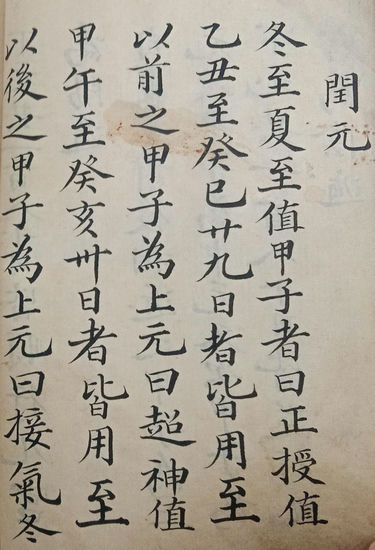 閏元
冬至夏至值甲子者曰正授值
乙丑至癸巳廿九日者皆用至
以前之甲子為上元曰超神值
甲午至癸亥卅日者皆用至
以後之甲子為上元曰接氣冬